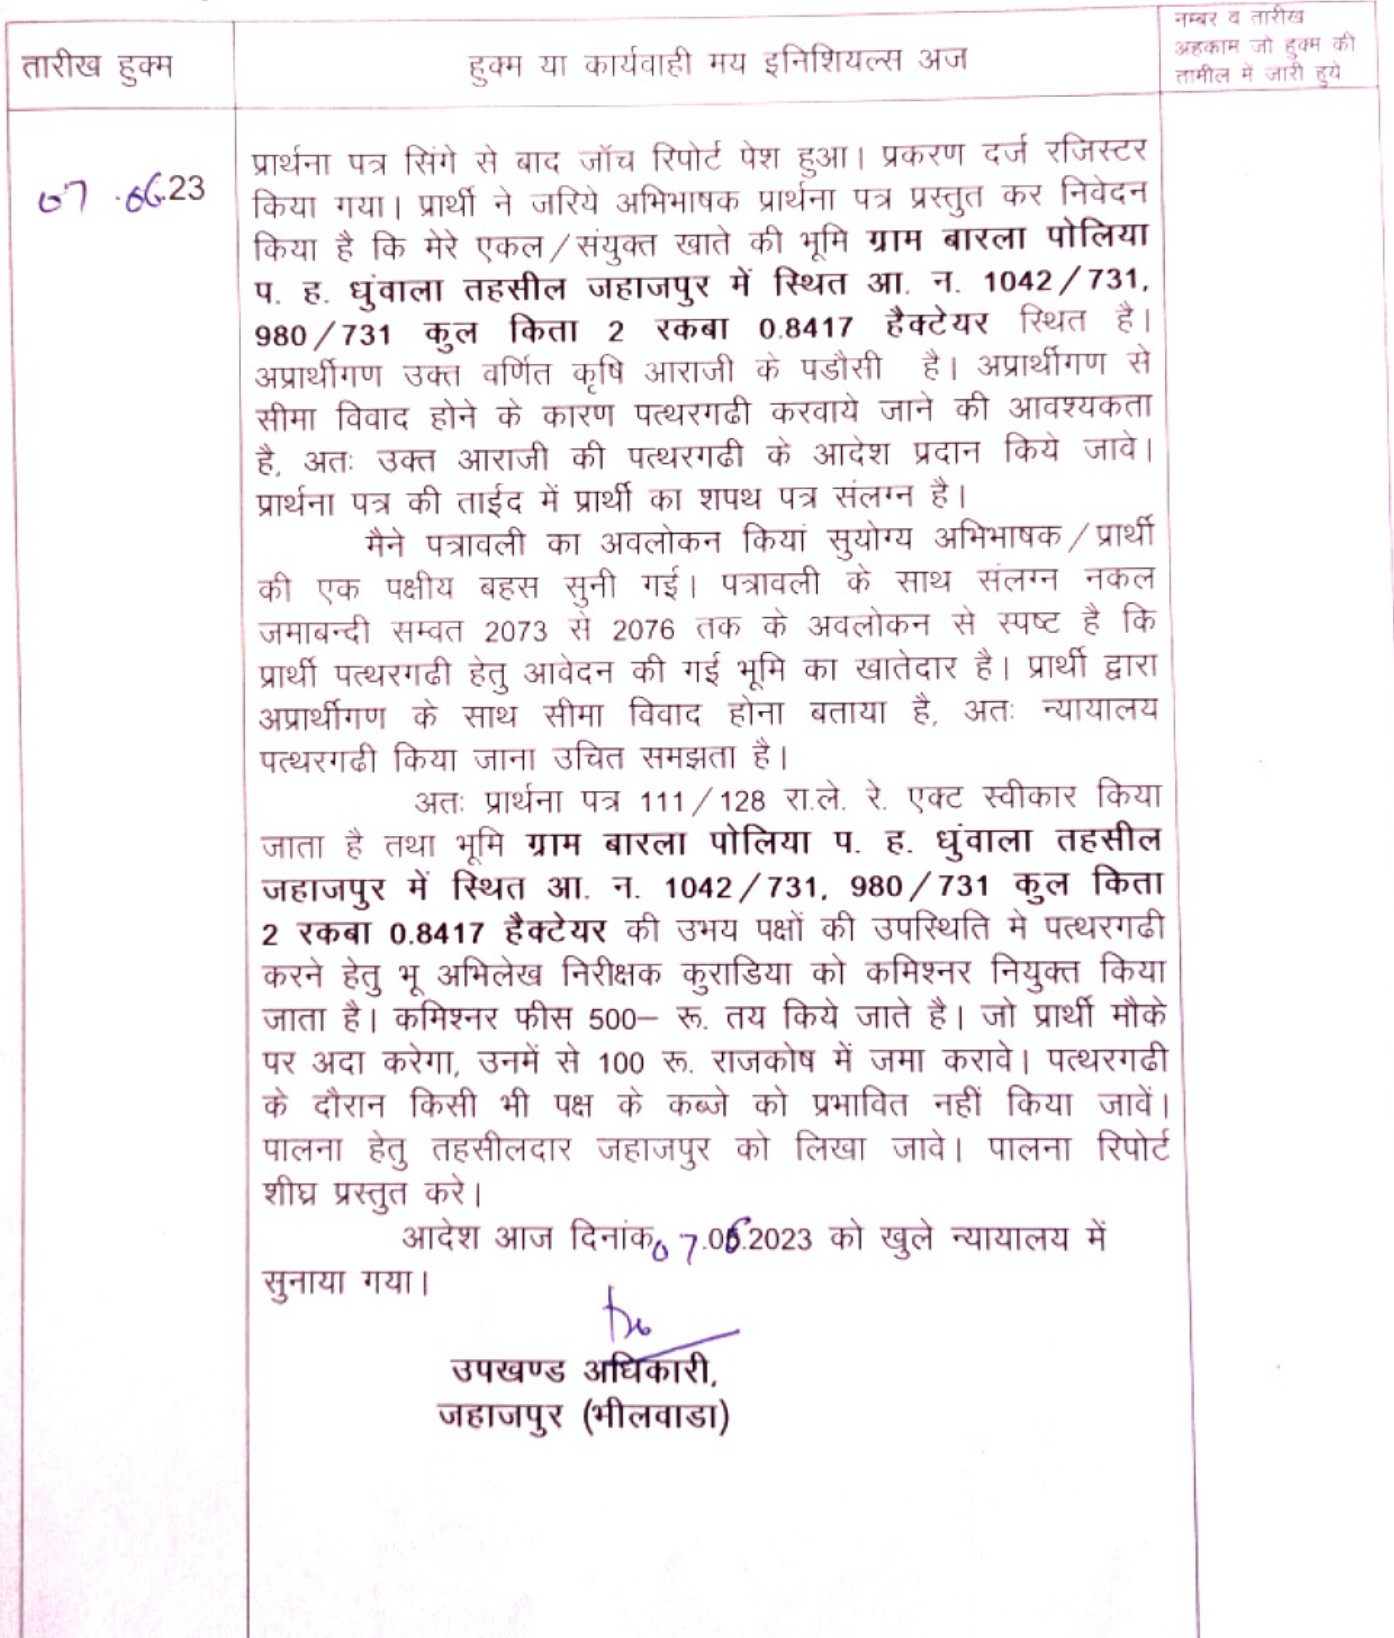 तारीख हुक्म
हुक्म या कार्यवाही मय इनिशियल्स अज
नम्बर व तारीख
अहकाम जो हुक्म की
तामील में जारी हुये
07.06.23
प्रार्थना पत्र सिंगे से बाद जॉच रिपोर्ट पेश हुआ। प्रकरण दर्ज रजिस्टर
किया गया। प्रार्थी ने जरिये अभिभाषक प्रार्थना पत्र प्रस्तुत कर निवेदन
किया है कि मेरे एकल/संयुक्त खाते की भूमि ग्राम बारला पोलिया
प. ह. धुंवाला तहसील जहाजपुर में स्थित आ. न. 1042/731,
980/731 कुल किता 2 रकबा 0.8417 हैक्टेयर स्थित है।
अप्रार्थीगण उक्त वर्णित कृषि आराजी के पडौसी है। अप्रार्थीगण से
सीमा विवाद होने के कारण पत्थरगढी करवाये जाने की आवश्यकता
है, अतः उक्त आराजी की पत्थरगढी के आदेश प्रदान किये जावे।
प्रार्थना पत्र की ताईद में प्रार्थी का शपथ पत्र संलग्न है।
मैने पत्रावली का अवलोकन कियां सुयोग्य अभिभाषक/प्रार्थी
की एक पक्षीय बहस सुनी गई। पत्रावली के साथ संलग्न नकल
जमाबन्दी सम्वत 2073 से 2076 तक के अवलोकन से स्पष्ट है कि
प्रार्थी पत्थरगढी हेतु आवेदन की गई भूमि का खातेदार है। प्रार्थी द्वारा
अप्रार्थीगण के साथ सीमा विवाद होना बताया है, अतः न्यायालय
पत्थरगढी किया जाना उचित समझता है।
अतः प्रार्थना पत्र 111/128 रा.ले. रे. एक्ट स्वीकार किया
जाता है तथा भूमि ग्राम बारला पोलिया प. ह. धुंवाला तहसील
जहाजपुर में स्थित आ. न. 1042/731, 980/731 कुल किता
2 रकबा 0.8417 हैक्टेयर की उभय पक्षों की उपस्थिति मे पत्थरगढी
करने हेतु भू अभिलेख निरीक्षक कुराडिया को कमिश्नर नियुक्त किया
जाता है। कमिश्नर फीस 500– रू. तय किये जाते है। जो प्रार्थी मौके
पर अदा करेगा, उनमें से 100 रू. राजकोष में जमा करावे। पत्थरगढी
के दौरान किसी भी पक्ष के कब्जे को प्रभावित नहीं किया जावें।
पालना हेतु तहसीलदार जहाजपुर को लिखा जावे। पालना रिपोर्ट
शीघ्र प्रस्तुत करे।
आदेश आज दिनांक 07.06.2023 को खुले न्यायालय में
सुनाया गया।
उपखण्ड अधिकारी,
जहाजपुर (भीलवाडा)